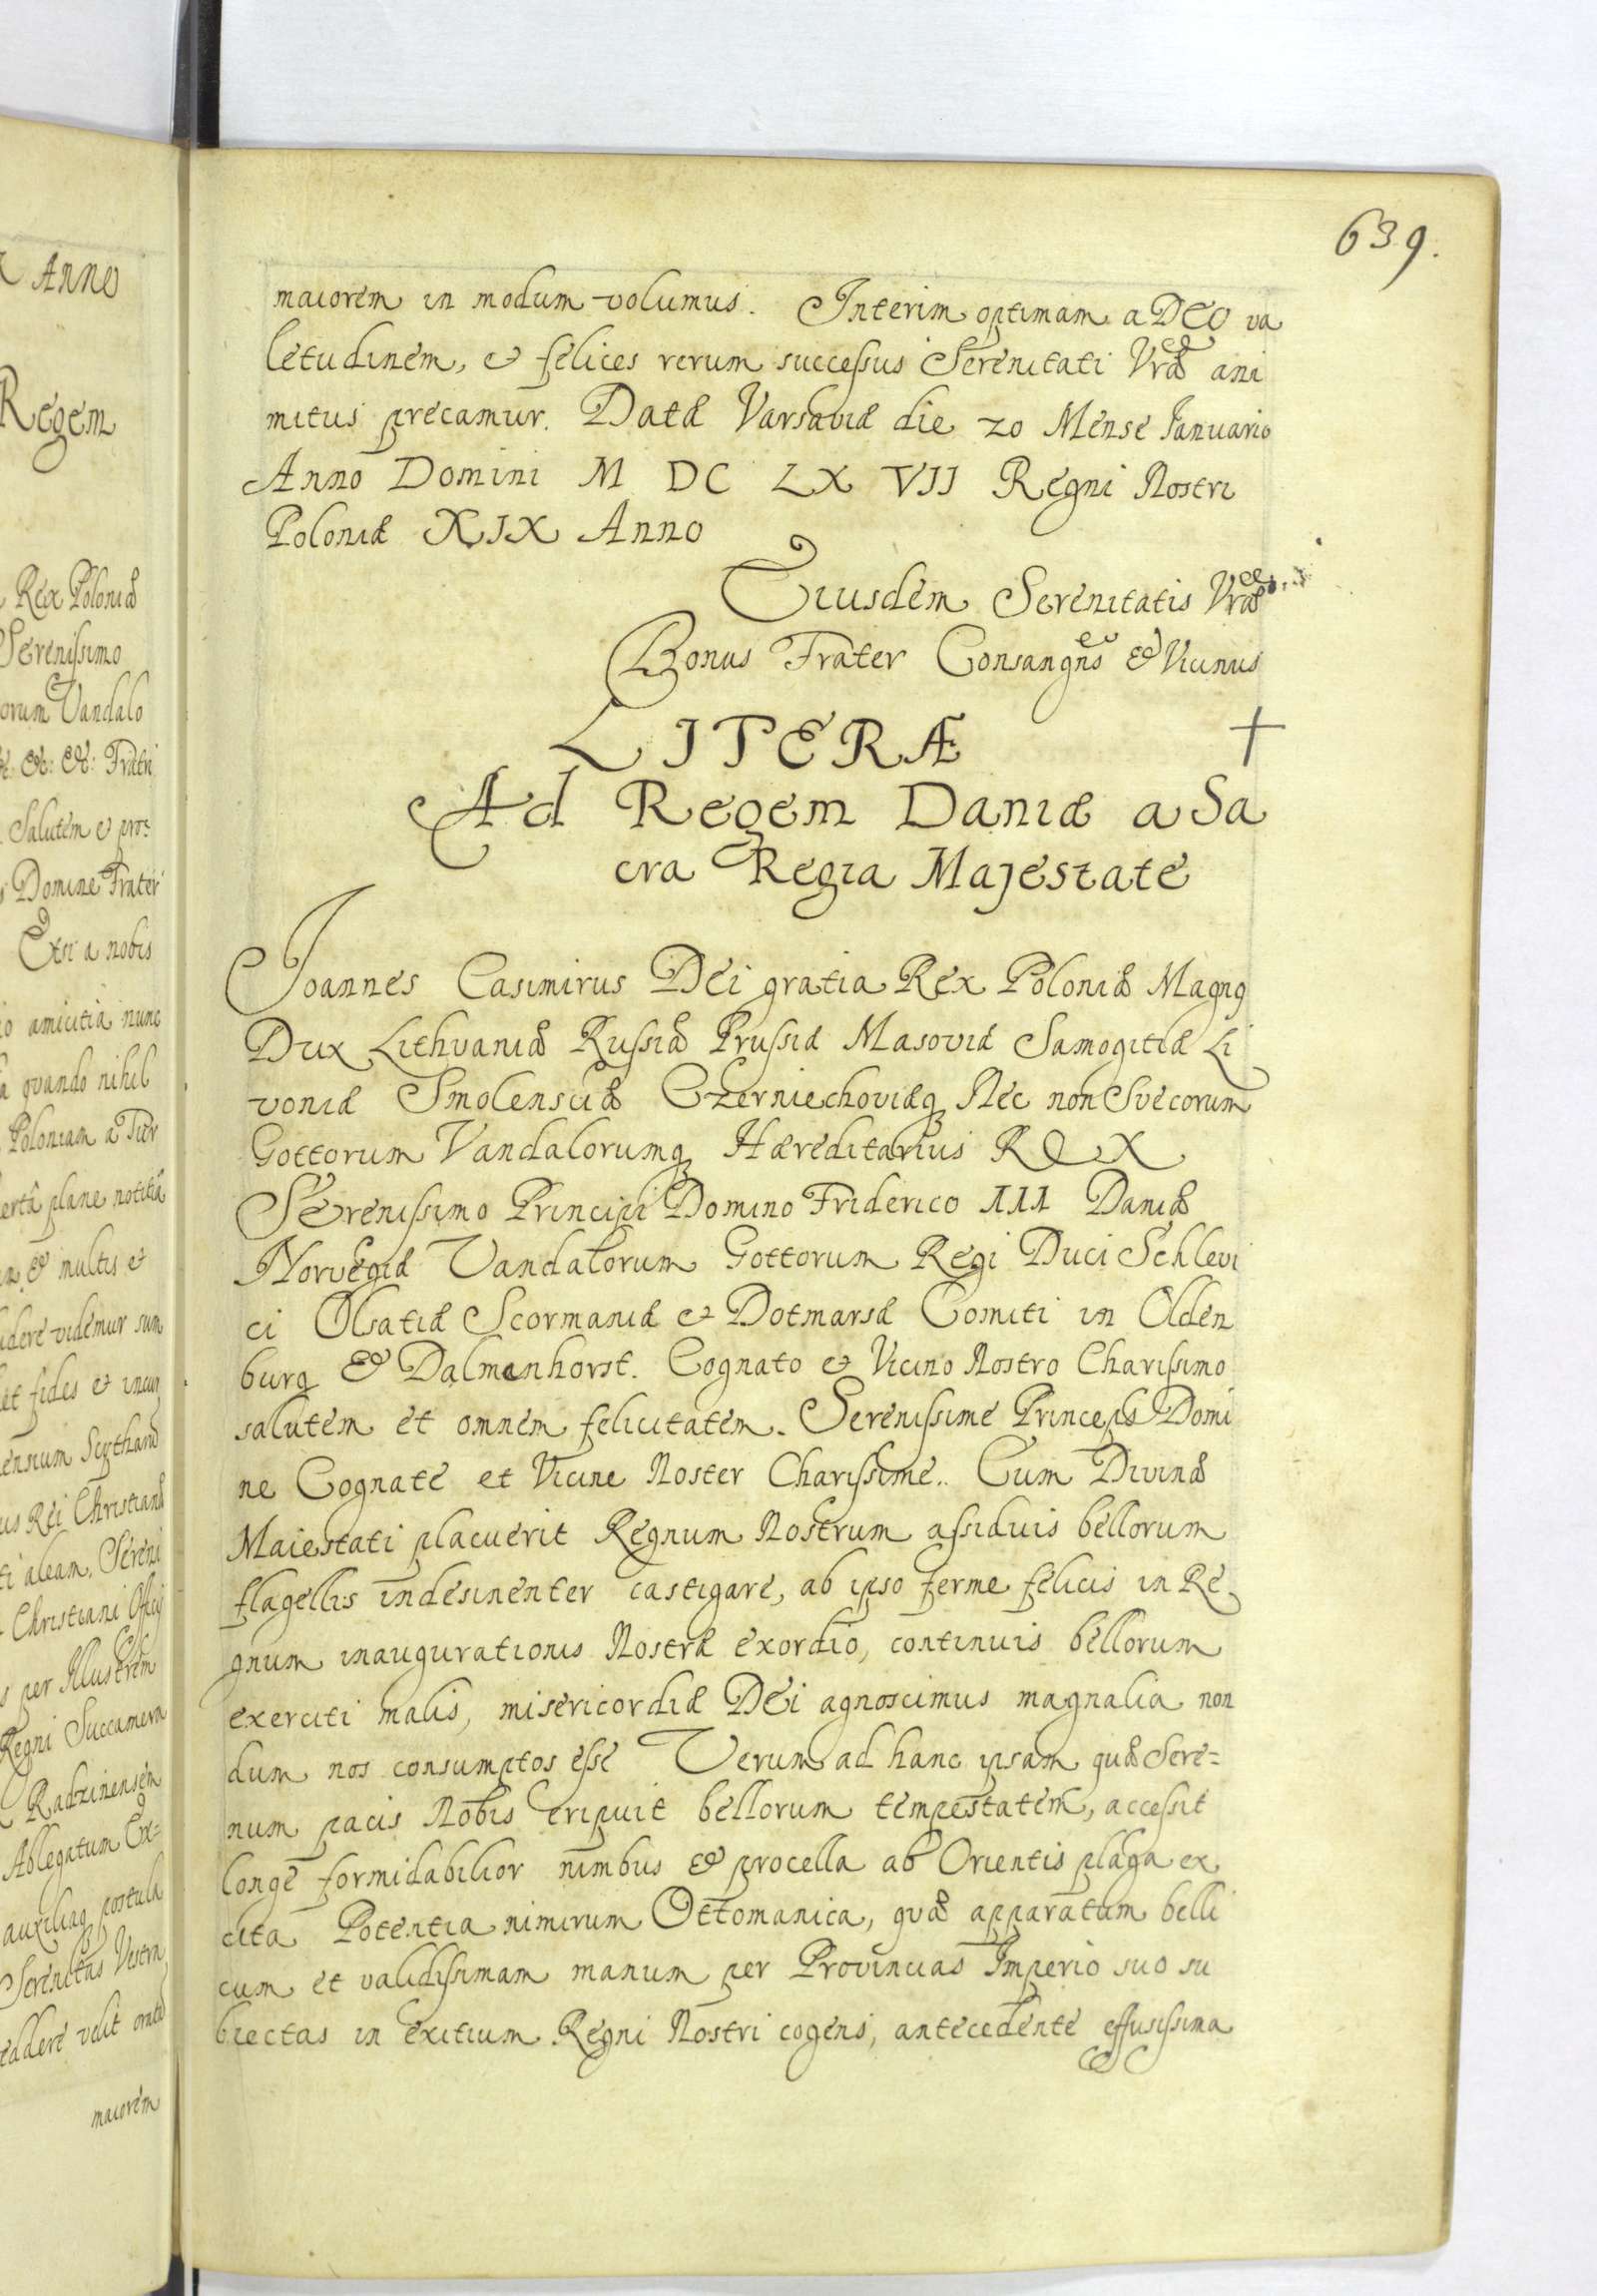 639.
maiorem in modum volumus. Interim optimam a DEO va
letudinem, et felices rerum successus Serenitati Vræ ani
mitus precamur. Datæ Varsaviæ die 20 Mense Ianuario
Anno Domini M DC LX VII Regni Nostri
Poloniæ XIX Anno
Eiusdem Serenitatis Vræ
Bonus Frater Consangns et Vicinus
LITERÆ +
Ad Regem Daniæ a Sa
cra Regia Majestate
Joannes Casimirus Dei gratia Rex Poloniæ Magnq
Dux Lithvaniæ Russiæ Prussiæ Masoviæ Samogitiæ Li
voniæ Smolensciæ Czerniechoviæq Nec non Svecorum
Gottorum Vandalorumq Hæreditarius REX
Serenissimo Principi Domino Friderico III Daniæ
Norvegiæ Vandalorum Gottorum Regi Duci Schlevi
ci Olsatiæ Scormaniæ et Dotmarsæ Comiti in Olden
burg et Dalmenhorst. Cognato et Vicino Nostro Charissimo
salutem et omnem felicitatem. Serenissime Princeps Domi
ne Cognate et Vicine Noster Charissime.. Cum Divinæ
Maiestati placuerit Regnum Nostrum assiduis bellorum
flagellis indesinenter castigare, ab ipso ferme felicis in Re
gnum inaugurationis Nostræ exordio, continuis bellorum
exerciti malis, misericordiæ Dei agnoscimus magnalia non
dum nos consumptos esse Verum ad hanc ipsam quæ Sere=
num pacis Nobis eripuit bellorum tempestatem, accessit
longe formidabilior nimbus et procella ab Orientis plaga ex
cita Potentia nimirum Ottomanica, quæ apparatum belli
cum et validissimam manum per Provincias Imperio suo su
biectas in exitium Regni Nostri cogens, antecedente effusissima
Anno
Regem
Rex Poloniæ
Serenissimo
orum Vandalo
Fratri
Salutem et pros=
Domine Frater
Etsi a nobis
amicitia nunc
quando nihil
Poloniam a Tur
plane notitiâ
et multis et
videmur sum
fides et incun
ensium Scythand
us Rei Christianæ
aleam. Sereni
Christiani Officij
per Illustrem
Regni Succamera
Radzinensem
Ablegatum Ex=
auxiliaq postula
Serenitas Vestra
eddere velit
maiorem